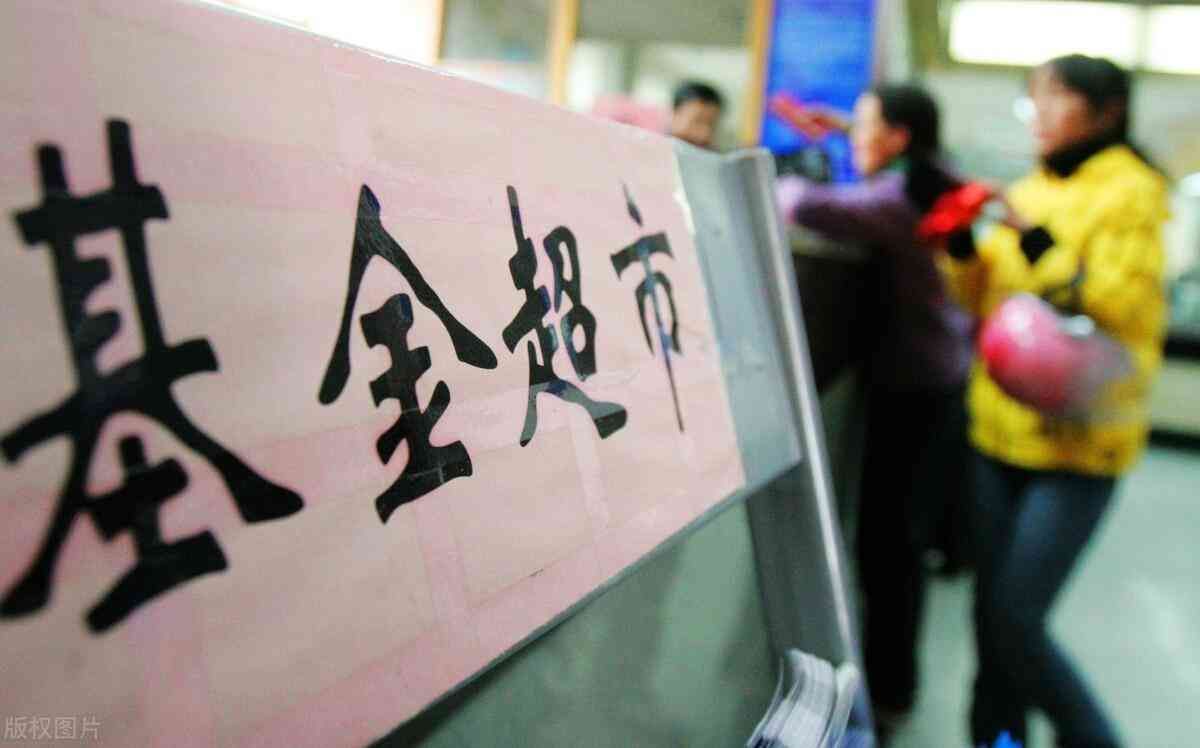 基金超市
版权图片